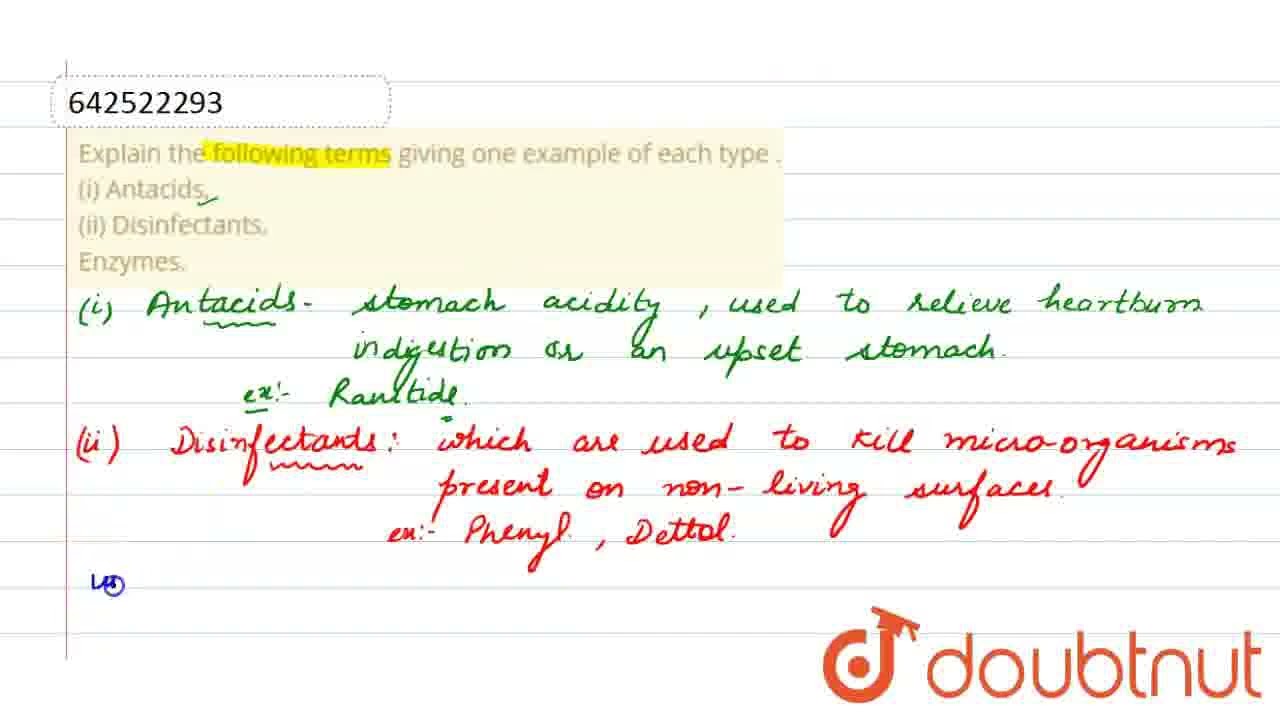 642522293
Explain the following terms giving one example of each type .
(i) Antacids,
(ii) Disinfectants,
Enzymes.
(i) Antacids - stomach acidity , used to relieve heartburn
indigestion or an upset stomach.
ex:- Ranitide.
(ii) Disinfectants : which are used to kill micro-organisms
present on non-living surfaces.
ex:- Phenyl , Dettol.
doubtnut